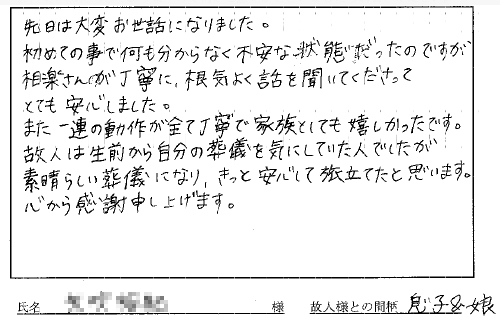 先日は大変お世話になりました。
初めての事で何も分からなく不安な状態だったのですが
相楽さんが丁寧に、根気よく話を聞いてくださって
とても安心しました。
また一連の動作が全て丁寧で家族としても嬉しかったです。
故人は生前から自分の葬儀を気にしていた人でしたが
素晴らしい葬儀になり、きっと安心して旅立てたと思います。
心から感謝申し上げます。
氏名 様 故人様との間柄 息子&娘